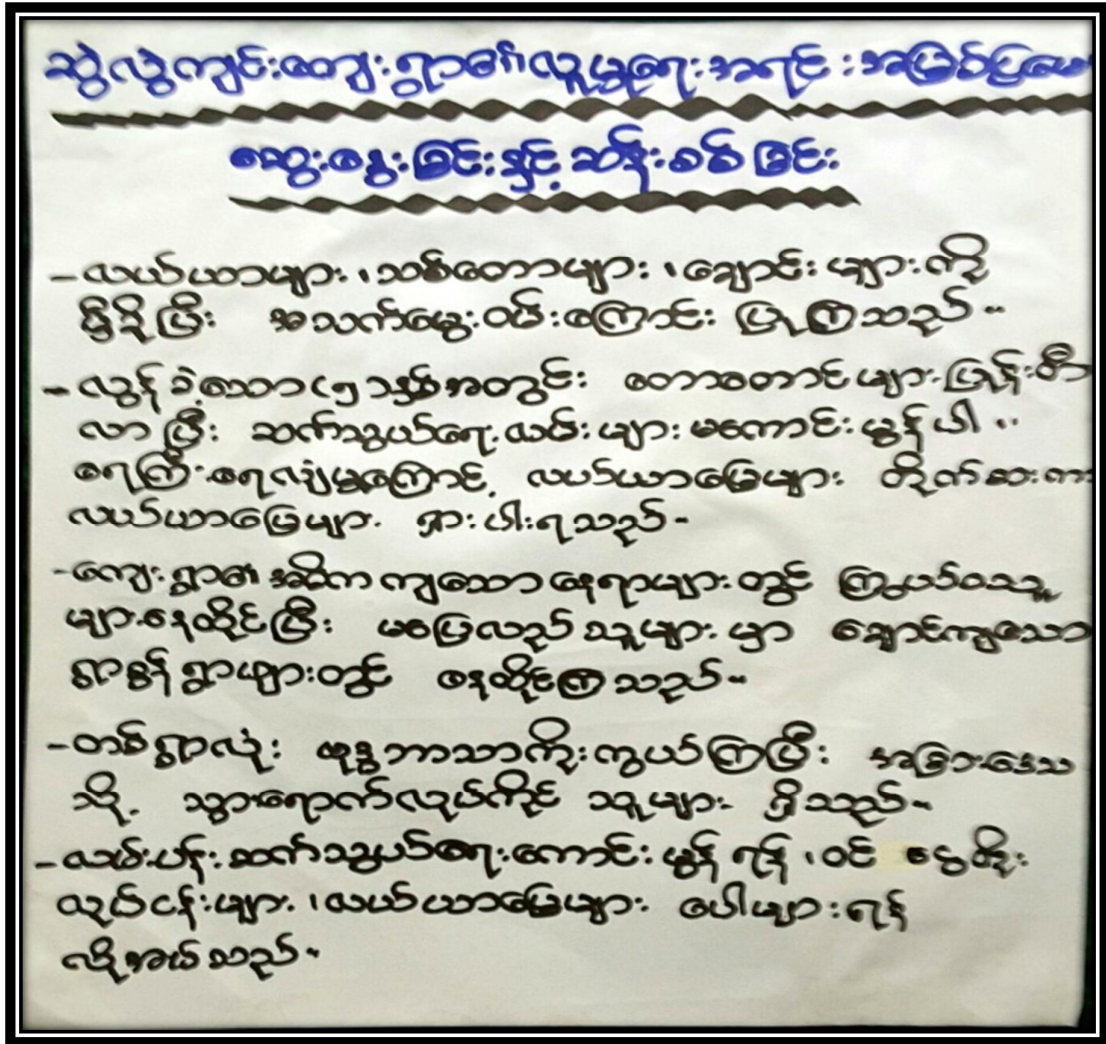 ဆွဲလွဲကျင်းကျေးရွာ၏လူမှုရေးအရင်းအမြစ်ပြမြေ
ဆွေးနွေးခြင်းနှင့်ဆန်းစစ်ခြင်း
-လယ်ယာများ၊သစ်တောများ၊ချောင်းများကို
မှီခိုပြီး အသက်မွေးဝမ်းကြောင်း ပြုကြသည်။
-လွန်ခဲ့သော(၅)နှစ်အတွင်း တောတောင်များပြုန်းတီး
လာပြီး ဆက်သွယ်ရေးလမ်းများမကောင်းမွန်ပါ။
ရေကြီးရေလျှံမှုကြောင့် လယ်ယာမြေများ တိုက်စား
လယ်ယာမြေများ ရှားပါးရသည်။
-ကျေးရွာ၏အဓိကကျသောနေရာများတွင် ကြွယ်ဝသူ
များနေထိုင်ပြီး မပြေလည်သူများမှာ ချောင်ကျသော
ရွာစွန်ရွာဖျားတွင် နေထိုင်ကြသည်။
-တစ်ရွာလုံး ဗုဒ္ဓဘာသာကိုးကွယ်ကြပြီး အခြားဒေသ
သို့ သွားရောက်လုပ်ကိုင်သူများ ရှိသည်။
-လမ်းပန်းဆက်သွယ်ရေးကောင်းမွန်ရန်၊ဝင်ငွေတိုး
လုပ်ငန်းများ၊လယ်ယာမြေများ ပေါများရန်
လိုအပ်သည်။